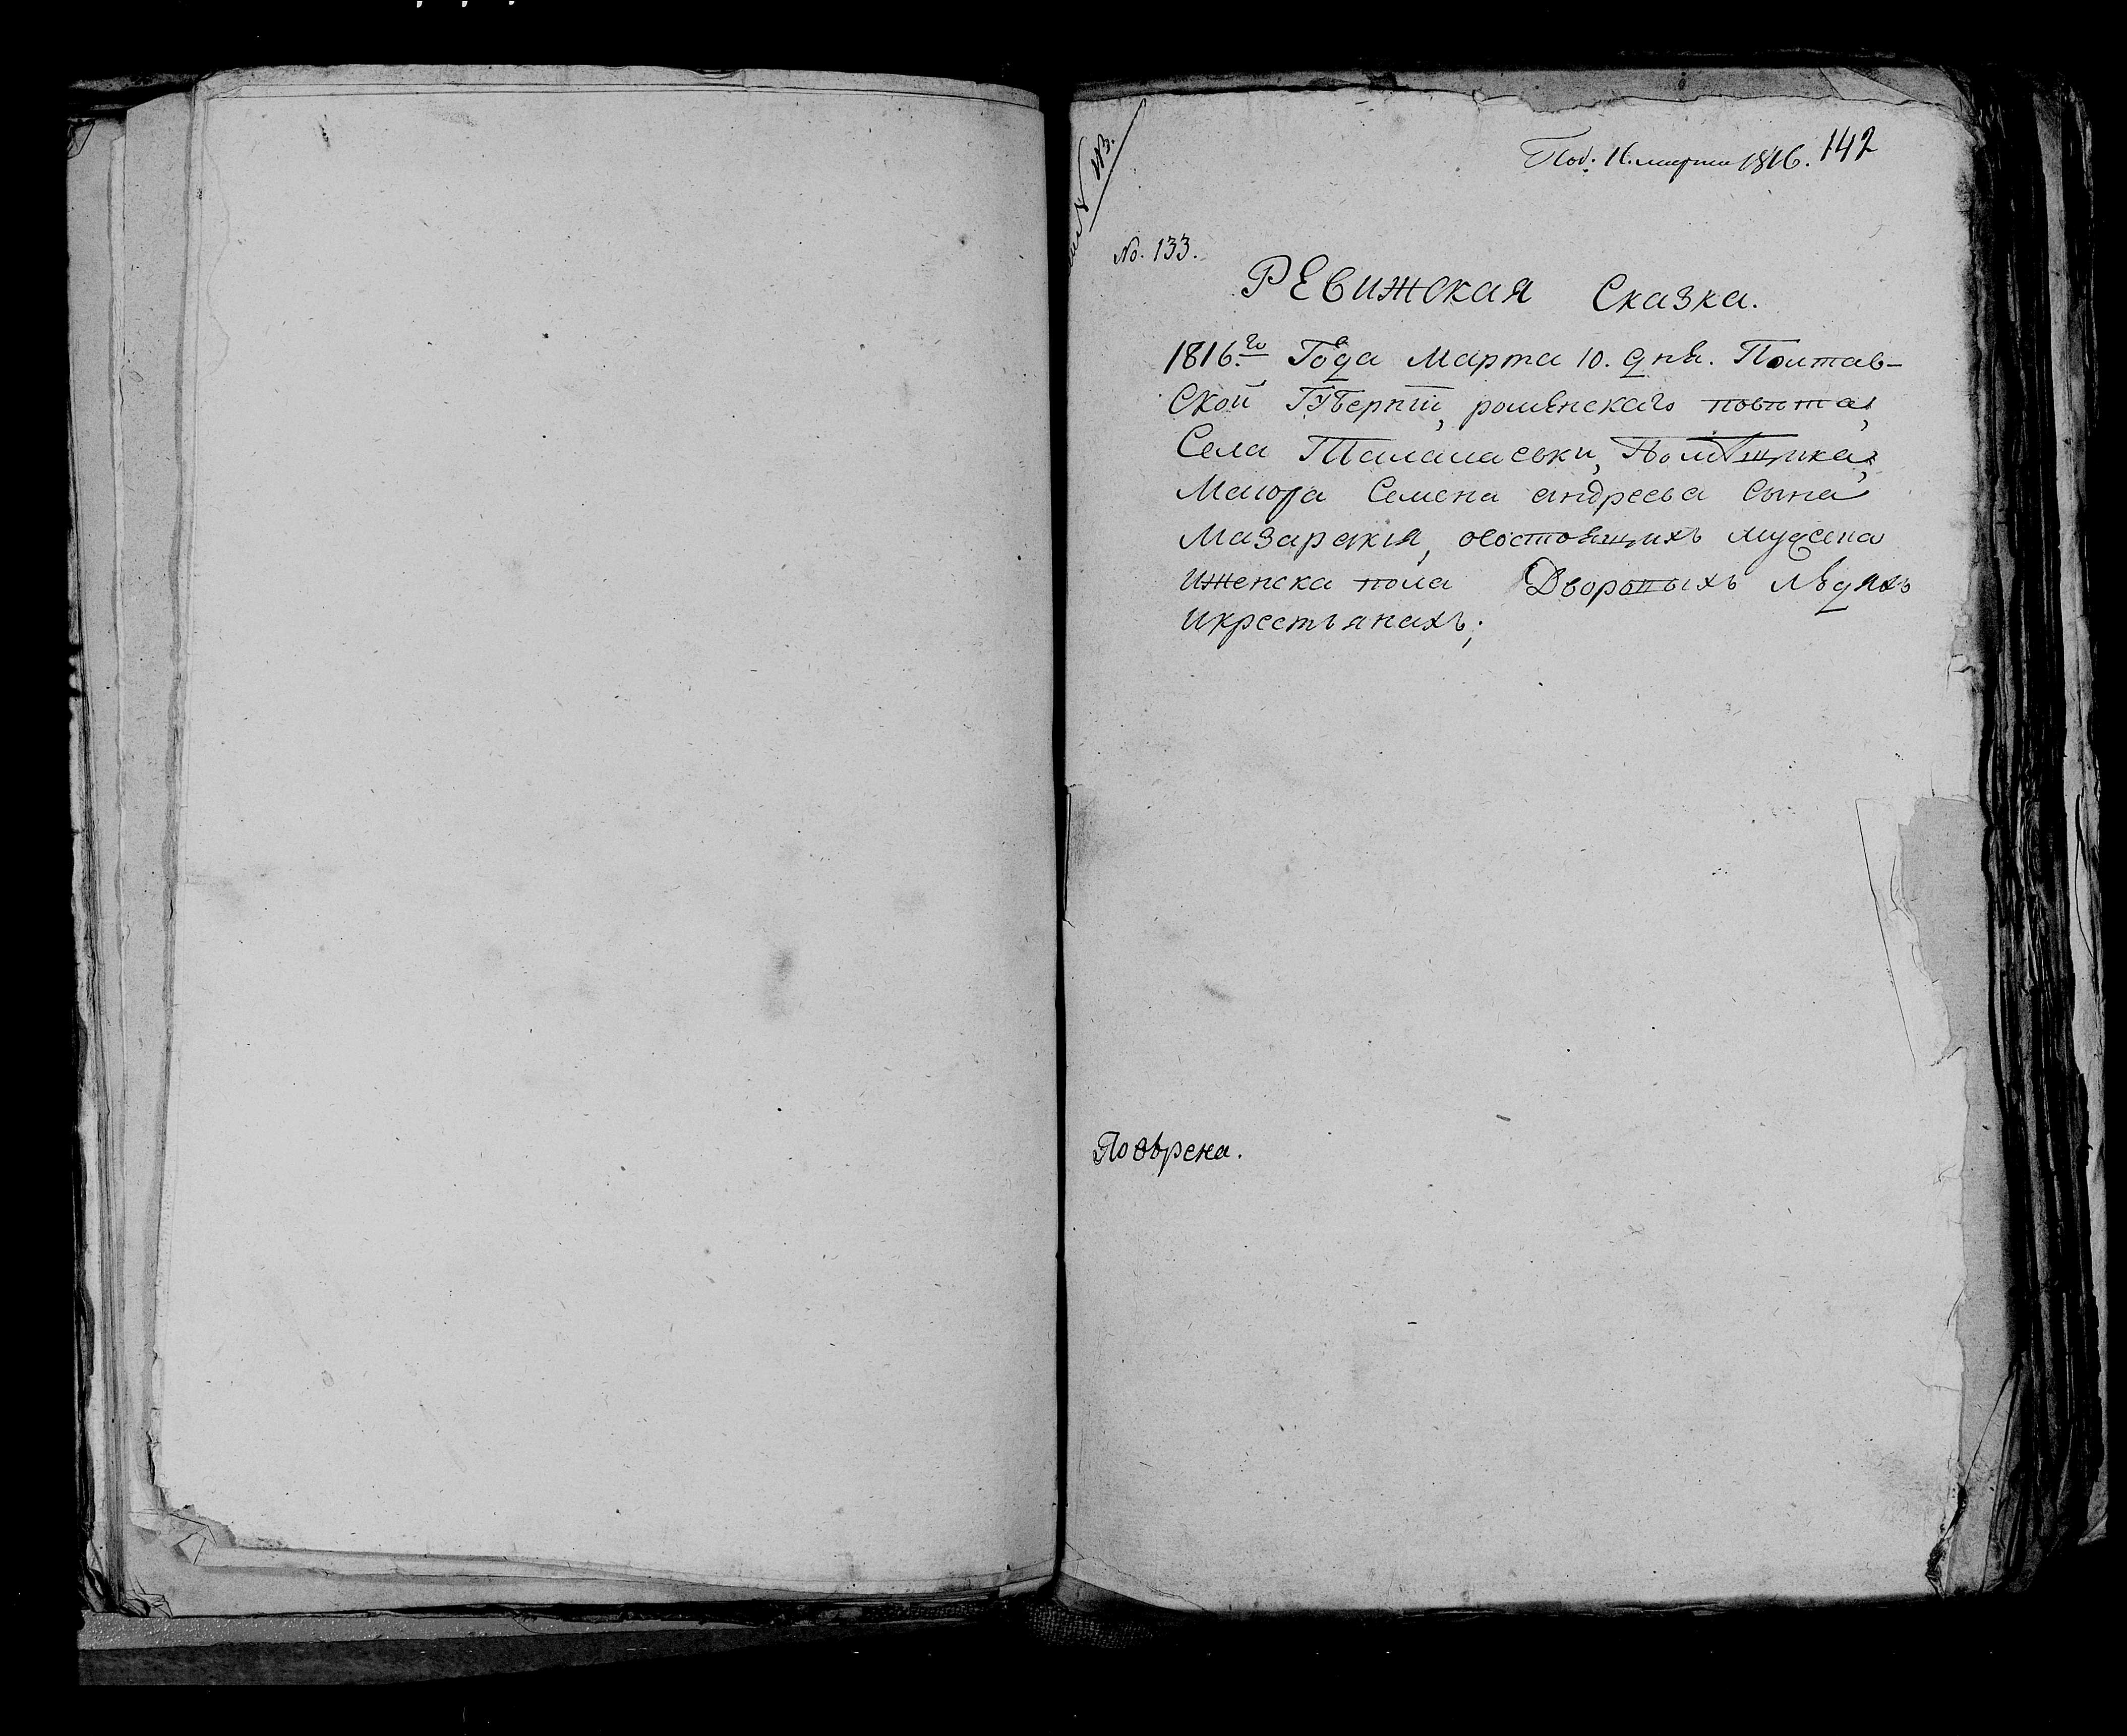 Под. 11. марта 1816. 142
113.
No. 133.
РЕвижская Сказка.
1816.го Года Марта 10. дня. Полтав-
Ской Губерніи, роменскаго повѣта,
Села Талалаевки, Помѣщика,
Маіора Семена андреева сына
Мазаракія, осостоящихъ мужеска
Иженска пола Дворовыхъ людяхъ
Икрестьянахъ;
Повѣрена.